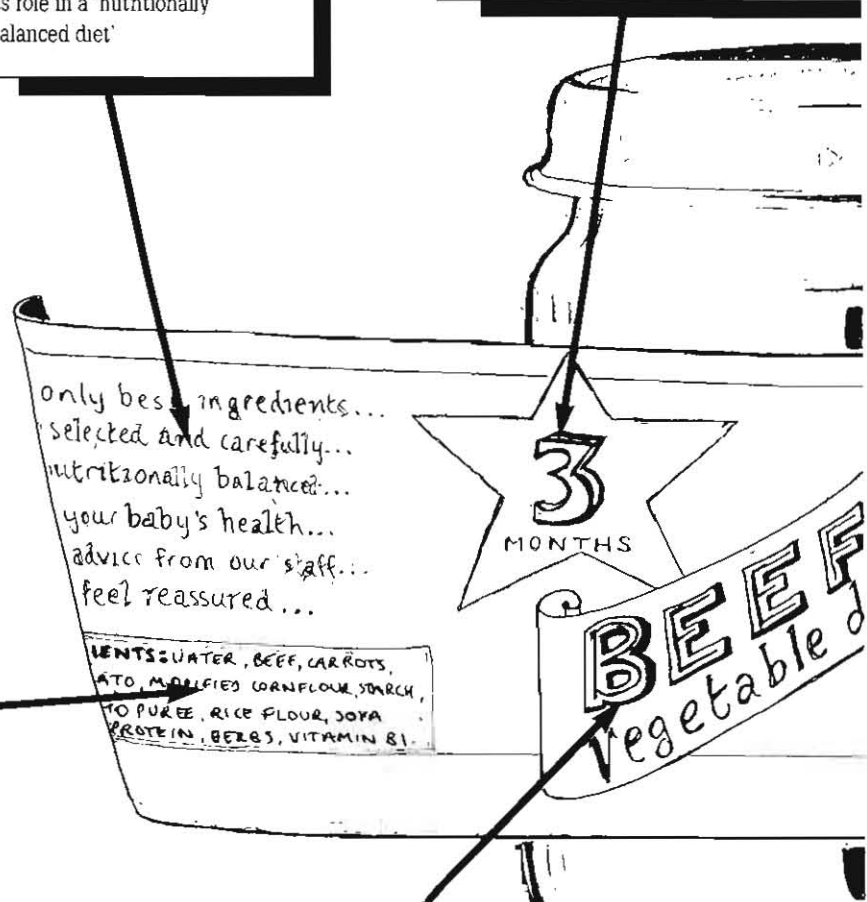 s role in a 'nutritionally
alanced diet'
only best ingredients...
selected and carefully...
nutritionally balanced...
your baby's health...
advice from our staff...
feel reassured...
3
MONTHS
BEEF
vegetable d
IENTS: WATER, BEEF, CARROTS,
ATO, MODIFIED CORNFLOUR, STARCH,
TO PUREE, RICE FLOUR, SOYA
PROTEIN, HERBS, VITAMIN B1.